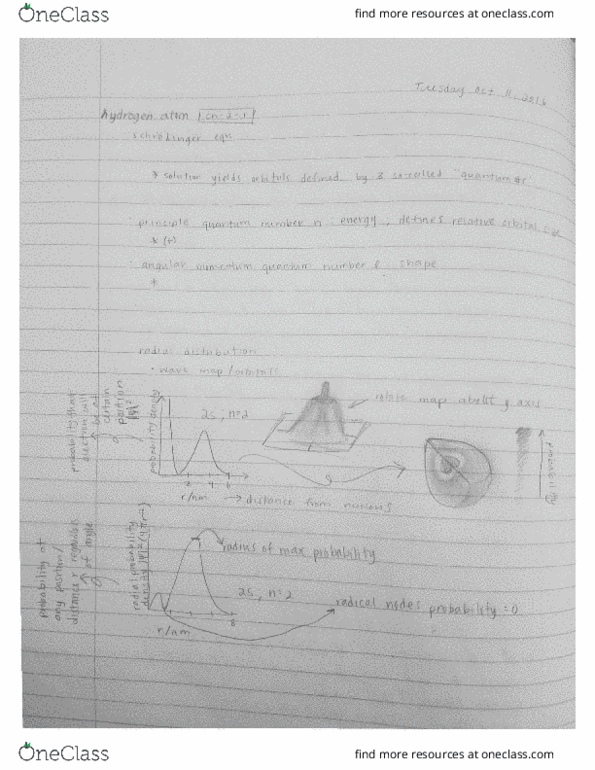 OneClass
find more resources at oneclass.com
Tuesday Oct 11, 2016
hydrogen atom
schrodinger eqn
→ solution yields orbitals defined by 3 so-called "quantum #s"
: principle quantum number n : energy, defines relative orbital size
: angular momentum quantum number ℓ : shape
radial distribution
• wave map/orbitals
probability that
electron will
be at
certain
position
|ψ|²
probability density
2s, n=2
2 4 6
r/nm → distance from nucleus
rotate map about y axis
probability
probability at
any position/
distance r regardless
of angle
radial probability
density |ψ|²(4πr²)
radius of max probability
2s, n=2
r/nm
radical nodes probability = 0
OneClass
find more resources at oneclass.com